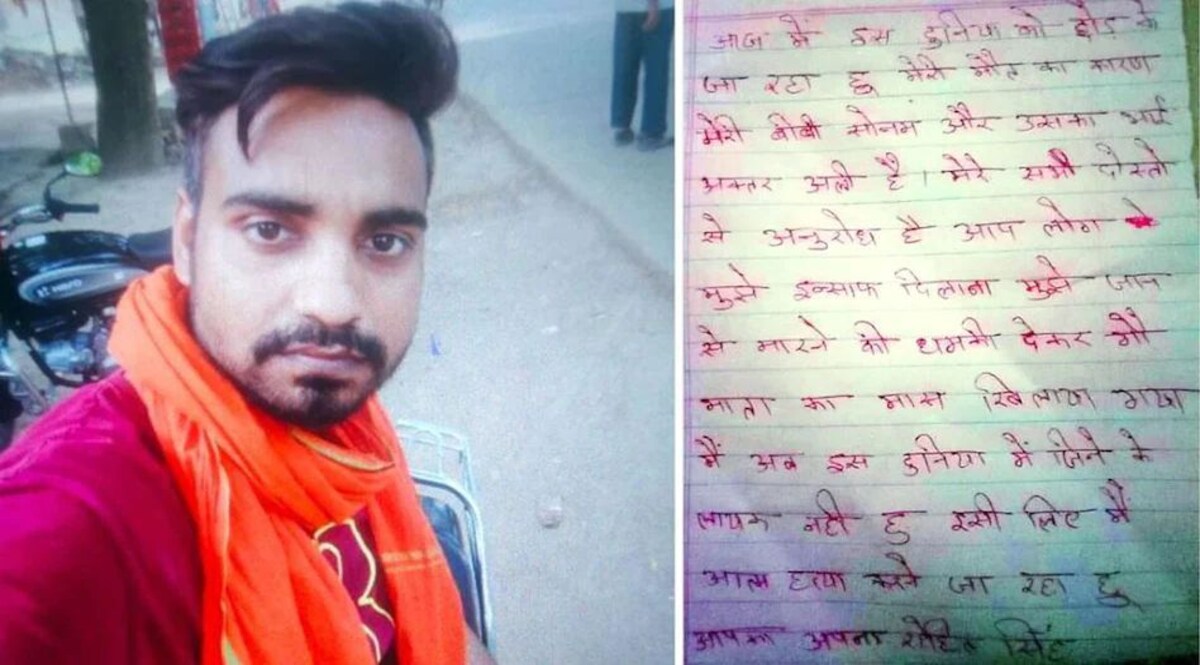 आज मैं इस दुनिया को छोड़ के
जा रहा हु मेरी मौत का कारण
मेरी बीबी सोनम और उसका भाई
अक्तर अली है। मेरे सभी दोस्तो
से अनुरोध है आप लोग
मुझे इन्साफ दिलाना मुझे जान
से मारने की धमकी देकर गौ
माता का मास खिलाया गया
मैं अब इस दुनिया में जिने के
लायक नही हु इसी लिए मैं
आत्म हत्या करने जा रहा हु
आपका अपना रोहित सिंह
HERO